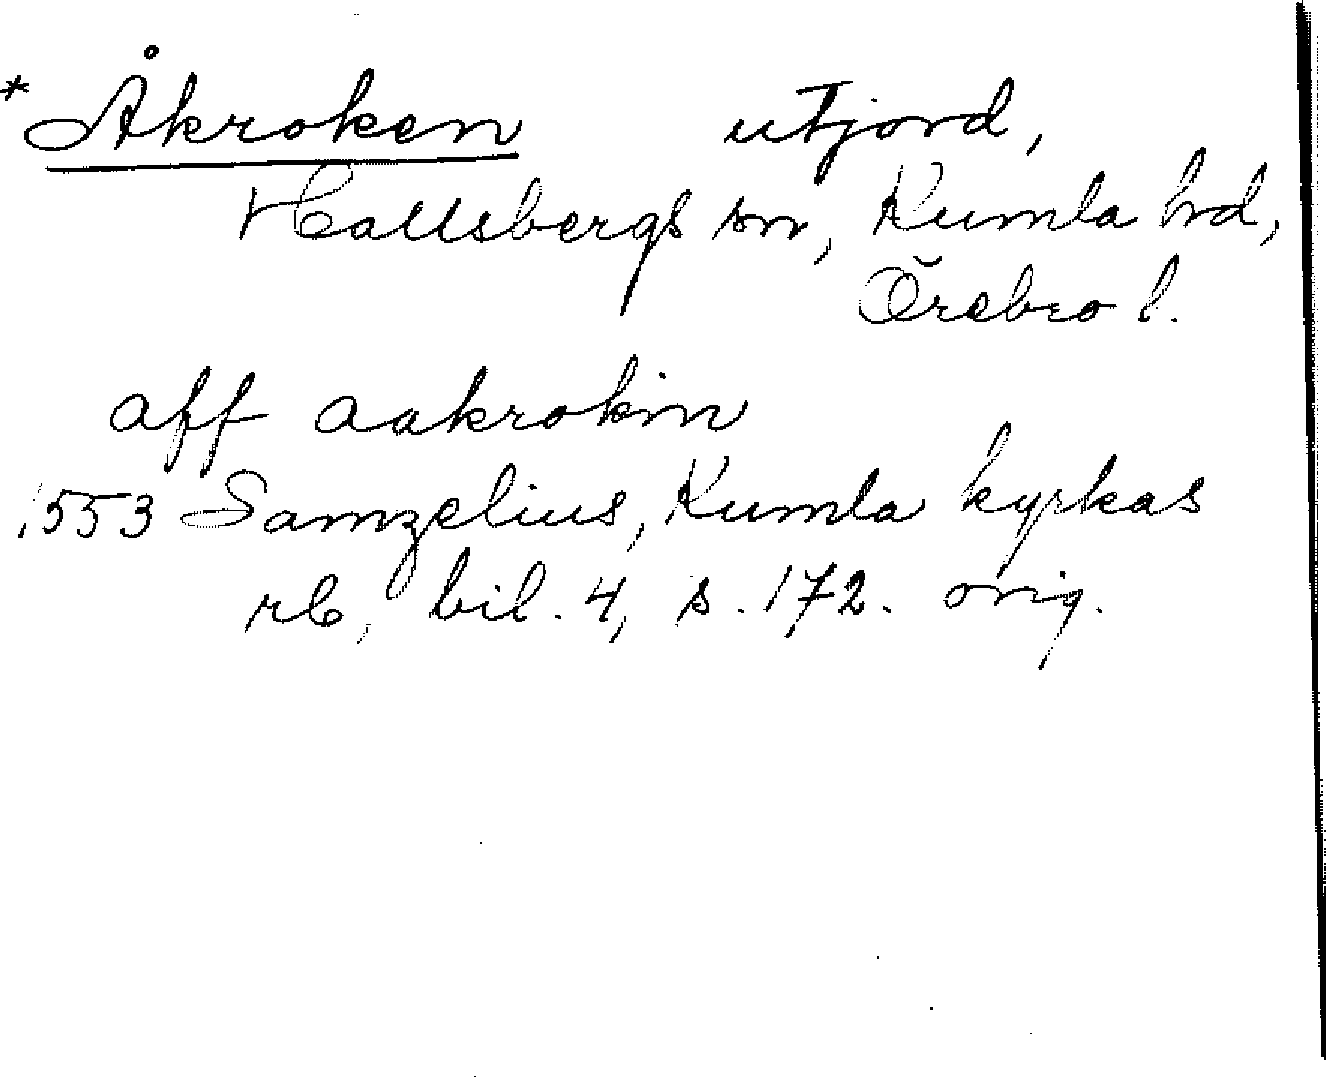 * Åkroken utjord,
Hallsbergs sn, Kumla hd,
Örebro l.
aff aakrokin
1553 Samzelius, Kumla kyrkas
rb, bil. 4, s. 172. orig.